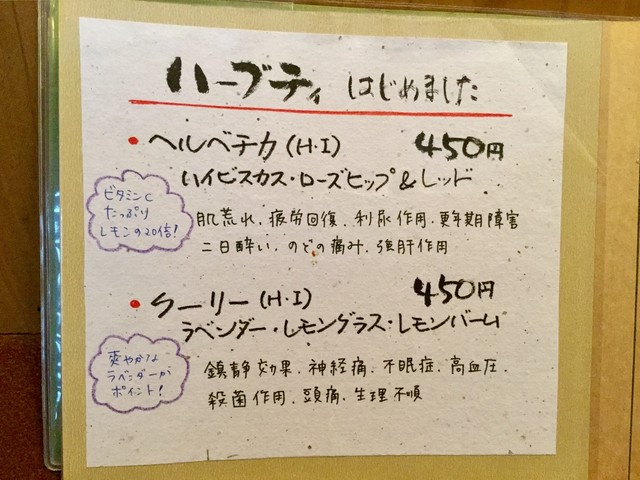 ハーブティはじめました
・ヘルベチカ(H・I) 450円
ハイビスカス・ローズヒップ&レッド
ビタミンC
たっぷり
レモンの20倍!
肌荒れ、疲労回復、利尿作用、更年期障害
二日酔い、のどの痛み、強肝作用
・クーリー(H・I) 450円
ラベンダー・レモングラス・レモンバーム
爽やかな
ラベンダーが
ポイント!
鎮静効果、神経痛、不眠症、高血圧、
殺菌作用、頭痛、生理不順